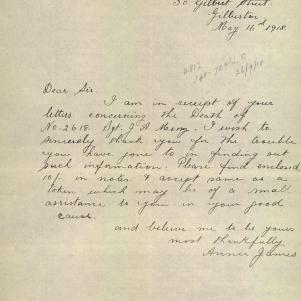 30 Gilbert Street.
Gilberton
May 16th 1918.
Dear Sir.
I am in receipt of your
letters concerning the Death of
No. 2618. Sgt. J. A.
I wish to
sincerely thank you for the trouble
you have gone to in finding out
such information. Please find enclosed
10/- in notes & accept same as a
token which may be of a small
assistance to you in your good
cause.
and believe me to be yours
most thankfully
Annie James